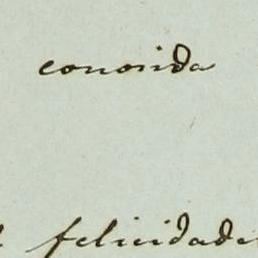 conocida
felicidade